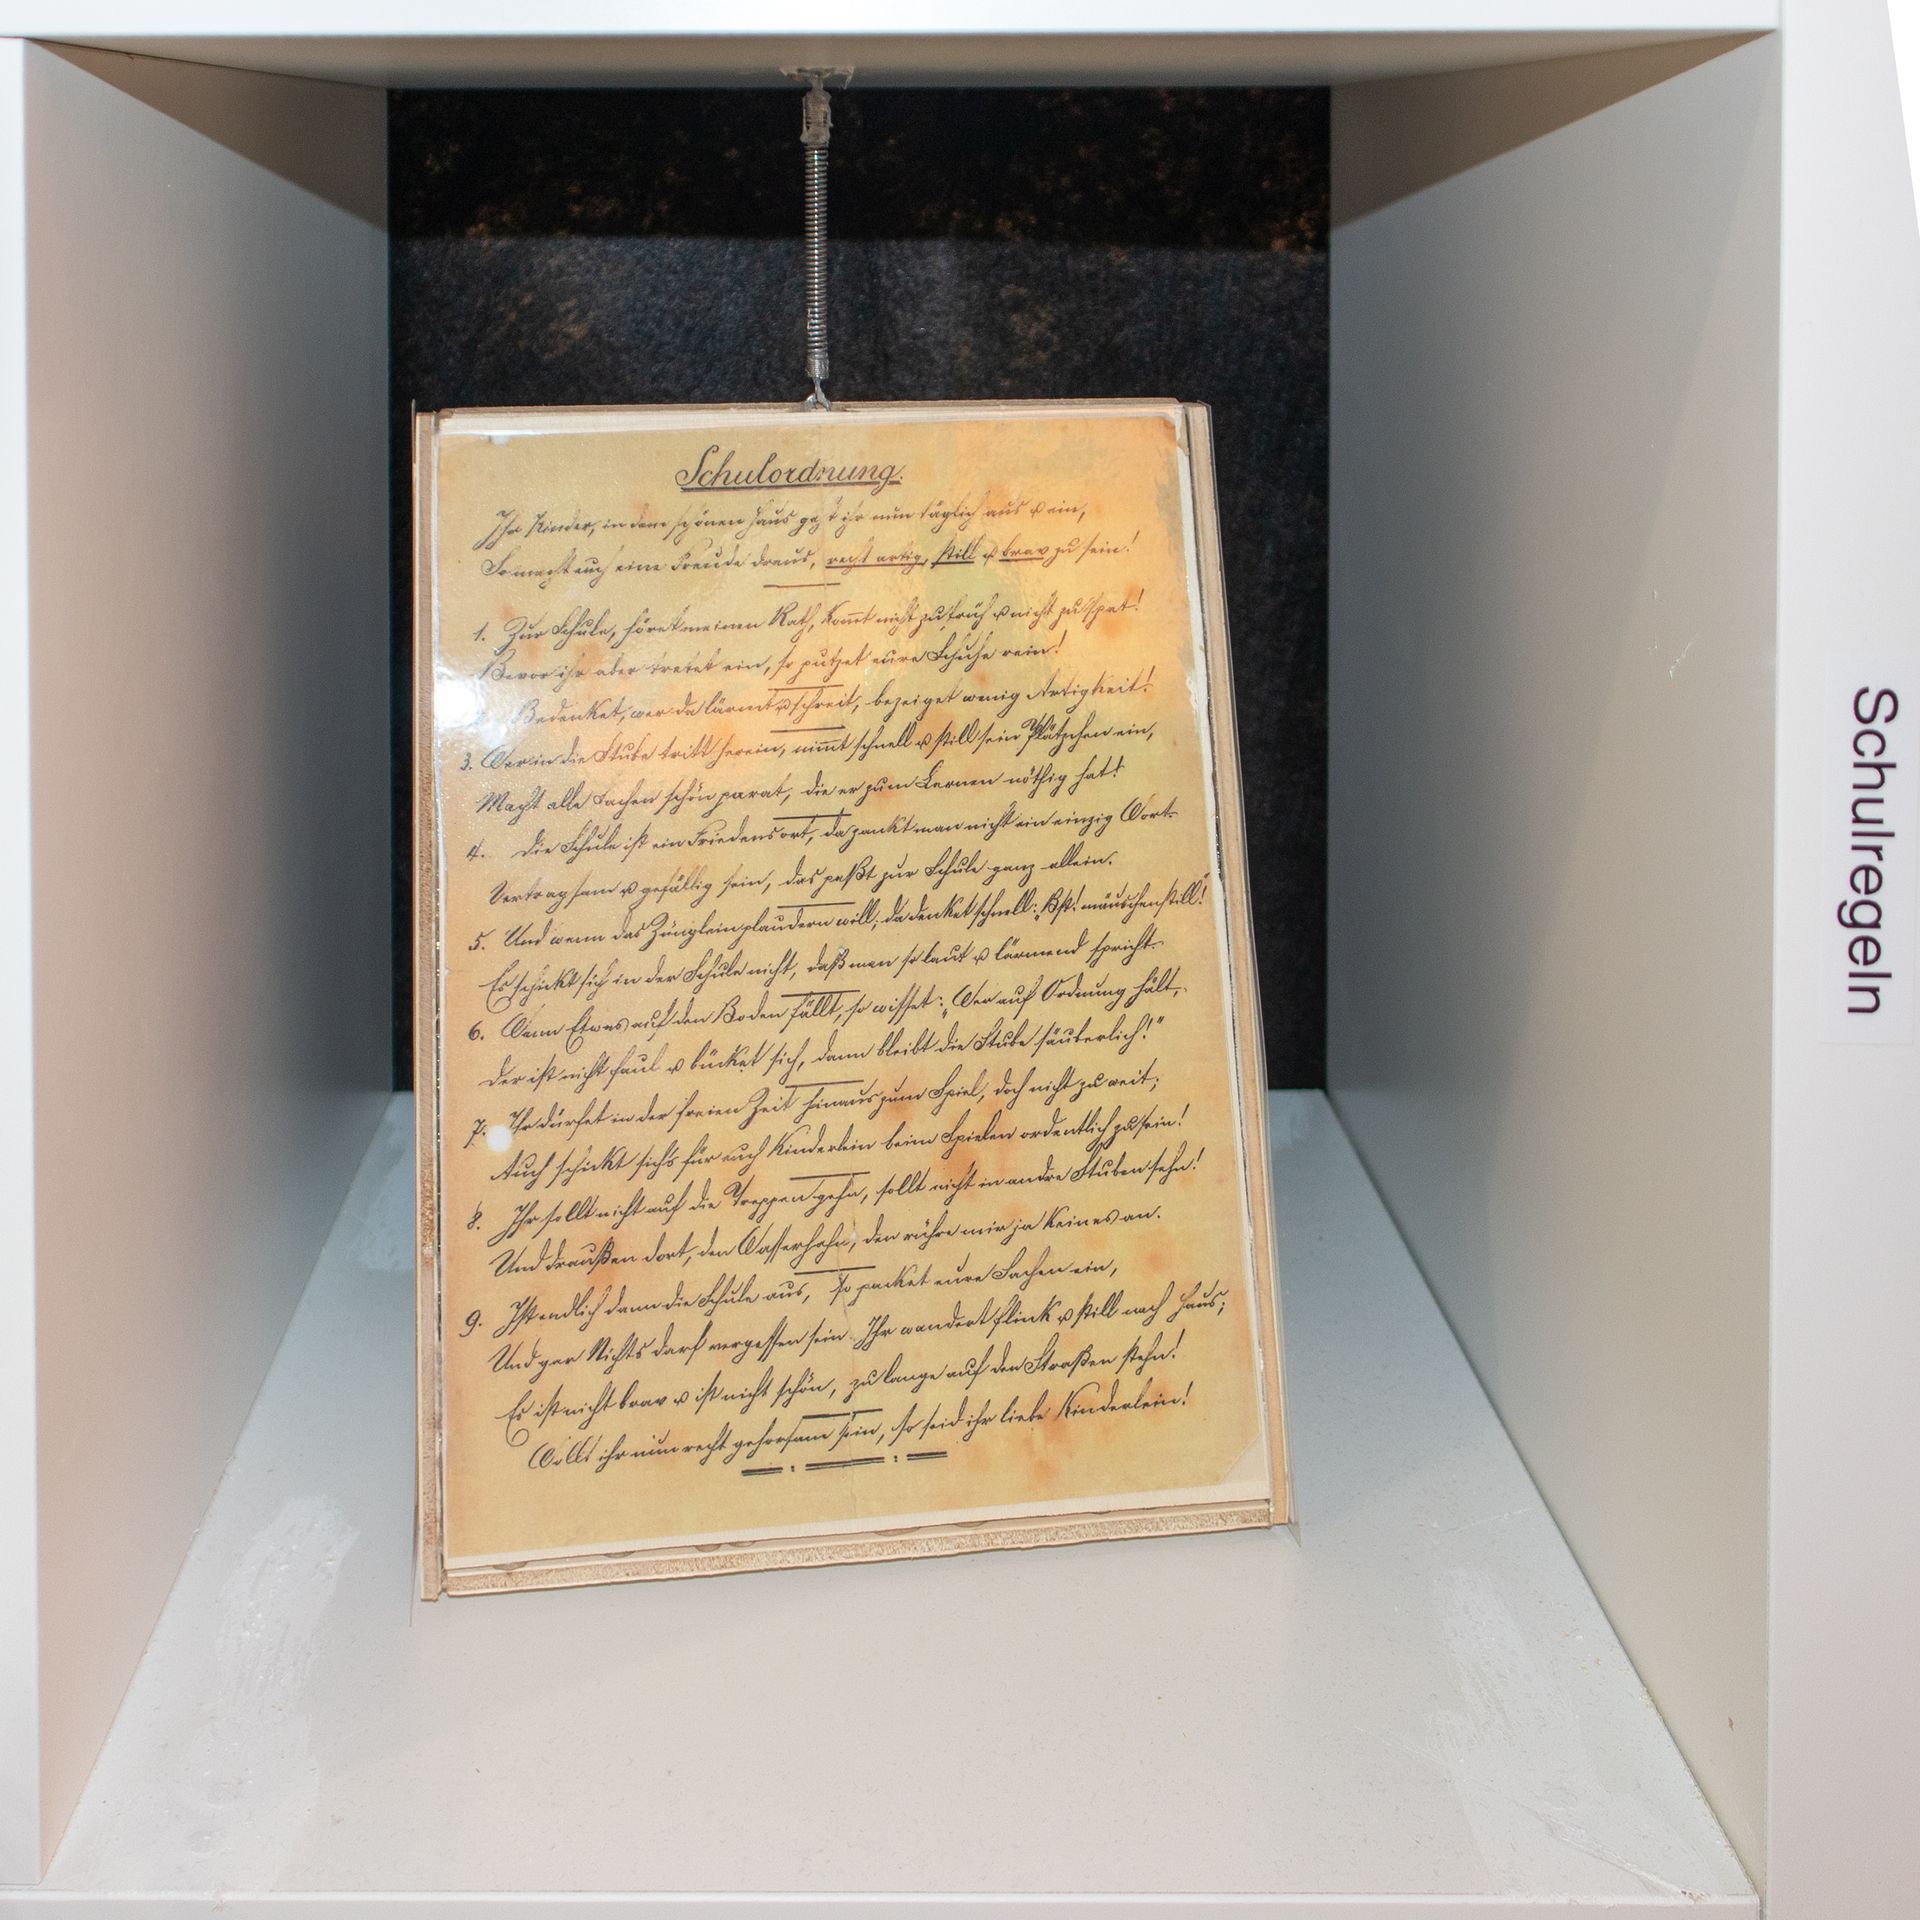 Schulordnung.
Ihr Kinder, in dem schönen Haus geht ihr nun täglich aus u ein,
So macht euch eine Freude draus, recht artig, still u brav zu sein!
1. Zur Schule, höret meinen Rath, kom̅t nicht zu früh u nicht zu spat!
Bevor ihr aber tretet ein, so putzet eure Schuhe rein!
Bedenket, wer da lärmt u schreit, bezeiget wenig Artigkeit!
3. Wer in die Stube tritt herein, nim̅t schnell u still sein Plätzchen ein,
Macht alle Sachen schön parat, die er zum Lernen nöthig hat!
4. Die Schule ist ein Friedensort, da zankt man nicht ein einzig Wort.
Vertragsam u gefällig sein, das paßt zur Schule ganz allein.
5. Und wenn das Zünglein plaudern will, da denket schnell: „Bst! mäuschenstill!"
Es schickt sich in der Schule nicht, daß man so laut u lärmend spricht.
6. Wenn Etwas auf den Boden fällt, so wisset: „Wer auf Ordnung hält,
Der ist nicht faul u bücket sich, dann bleibt die Stube säuberlich!"
7. Ihr dürfet in der freien Zeit hinaus zum Spiel, doch nicht zu weit;
Auch schickt sich's für euch Kinderlein beim Spielen ordentlich zu sein!
8. Ihr sollt nicht auf die Treppen gehn, sollt nicht in andre Stuben sehn!
Und draußen dort, den Wasserhahn, den rühre mir ja Keines an.
9. Ist endlich dann die Schule aus, so packet eure Sachen ein,
Und gar Nichts darf vergessen sein. Ihr wandert flink u still nach Haus;
Es ist nicht brav u ist nicht schön, zu lange auf den Straßen stehn!
Wollt ihr nun recht gehorsam sein, so seid ihr liebe Kinderlein!
Schulregeln